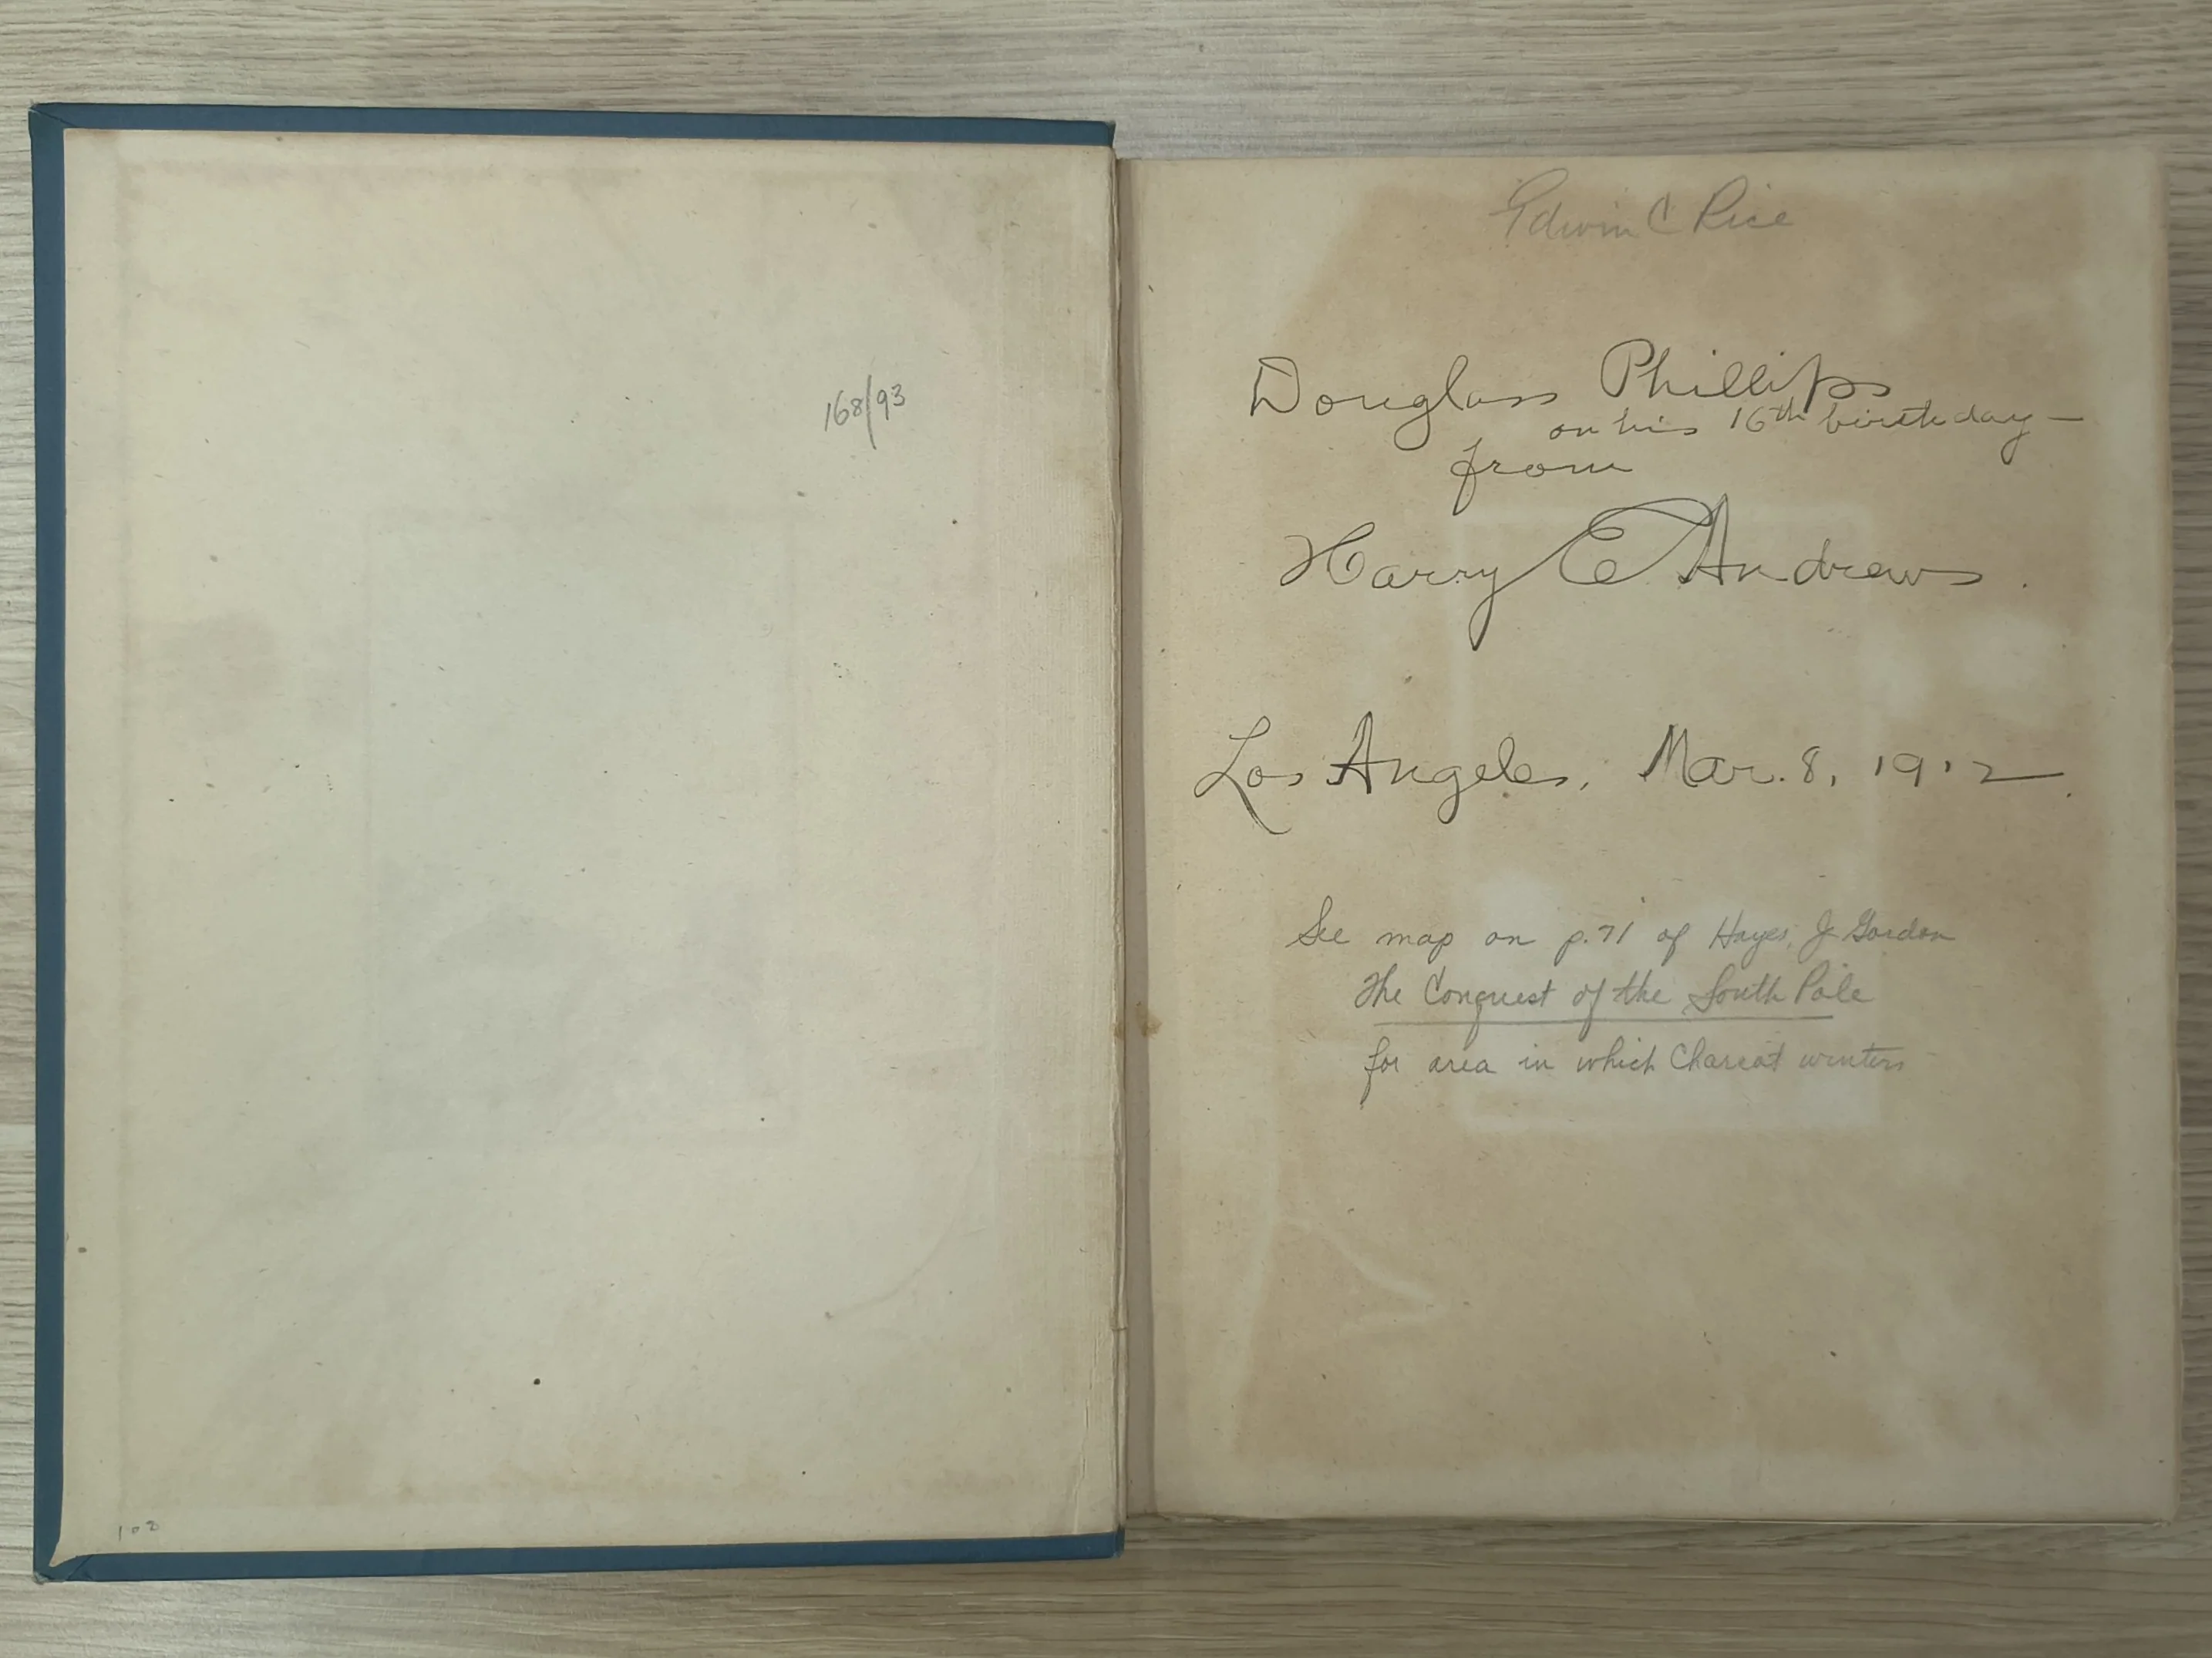 168/93
100
Edwin C Rice
Douglass Phillips
on his 16th birthday—
from
Harry E Andrews.
Los Angeles, Mar. 8, 1912.
See map on p.71 of Hayes, J Gordon
The Conquest of the South Pole
for area in which Charcot winters